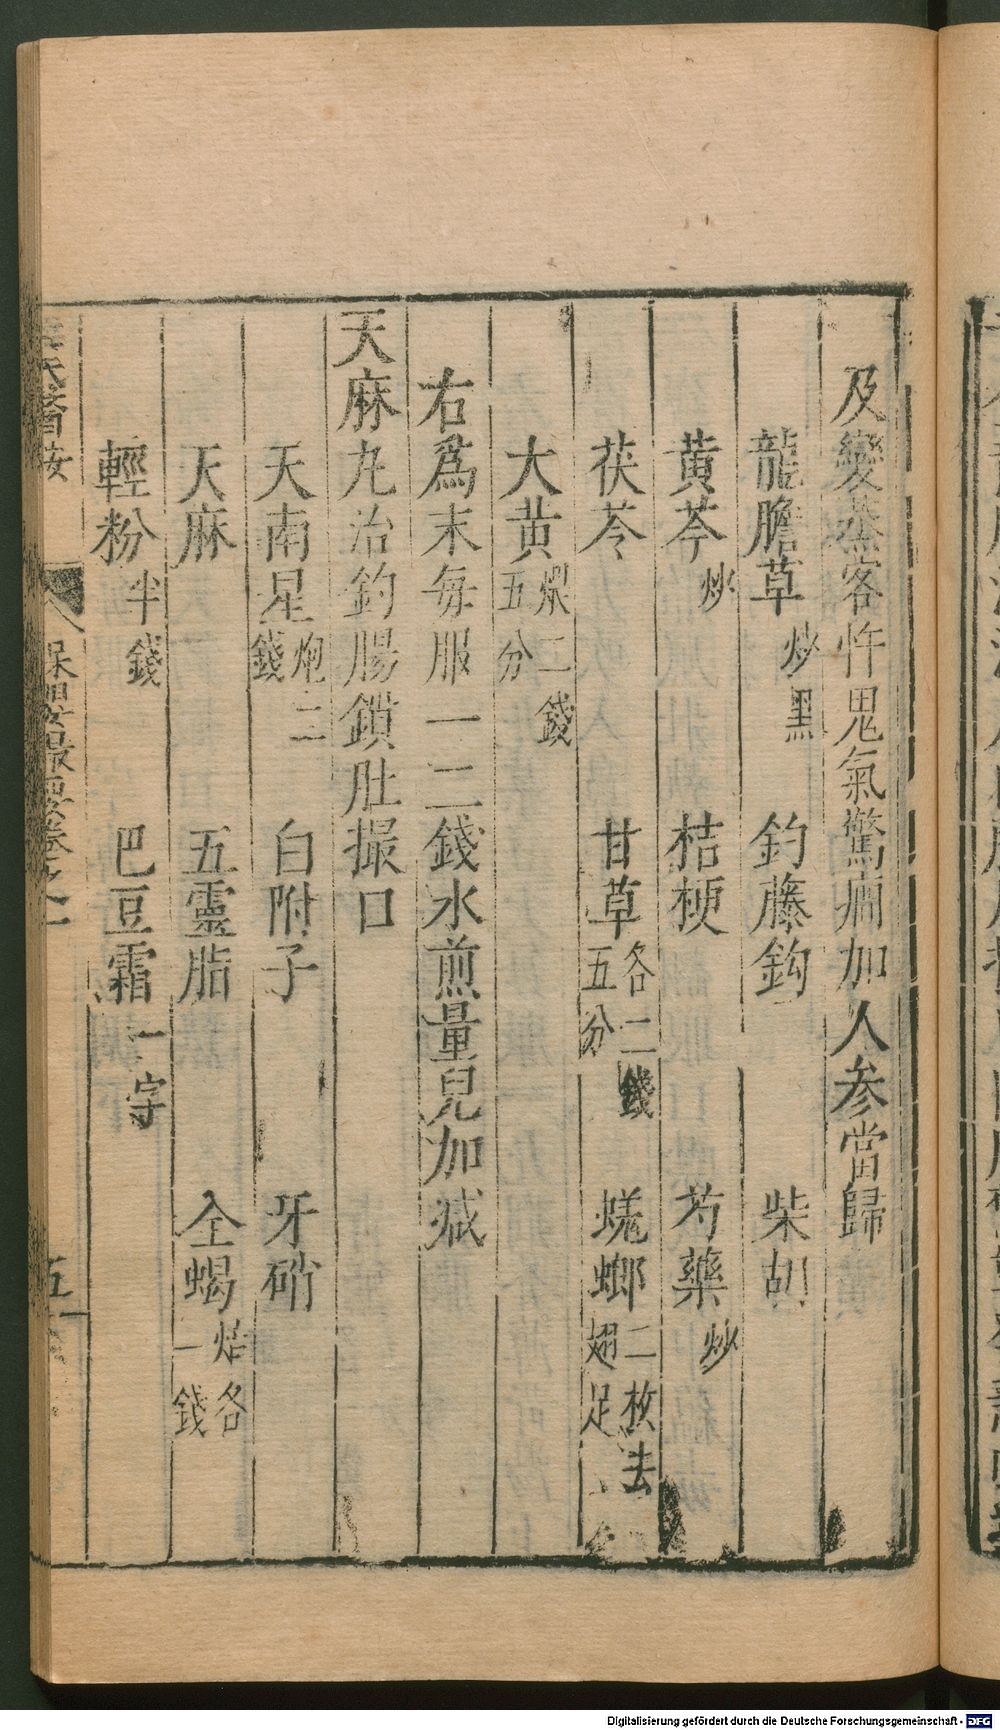 及變蒸客忤鬼氣驚癎加人參當歸
龍膽草炒黑 釣藤鈎 柴胡
黄芩炒 桔梗 芍藥炒
茯苓 甘草各二錢五分 蜣螂二枚去翅足
大黄煨二錢五分
右爲末每服一二錢水煎量兒加减
天麻丸治釣腸鎖肚撮口
天南星炮二錢 白附子 牙硝
天麻 五靈脂 全蝎焙各一錢
輕粉半錢 巴豆霜一字
氏醫按 保嬰撮要卷之一 五
Digitalisierung gefördert durch die Deutsche Forschungsgemeinschaft - DFG